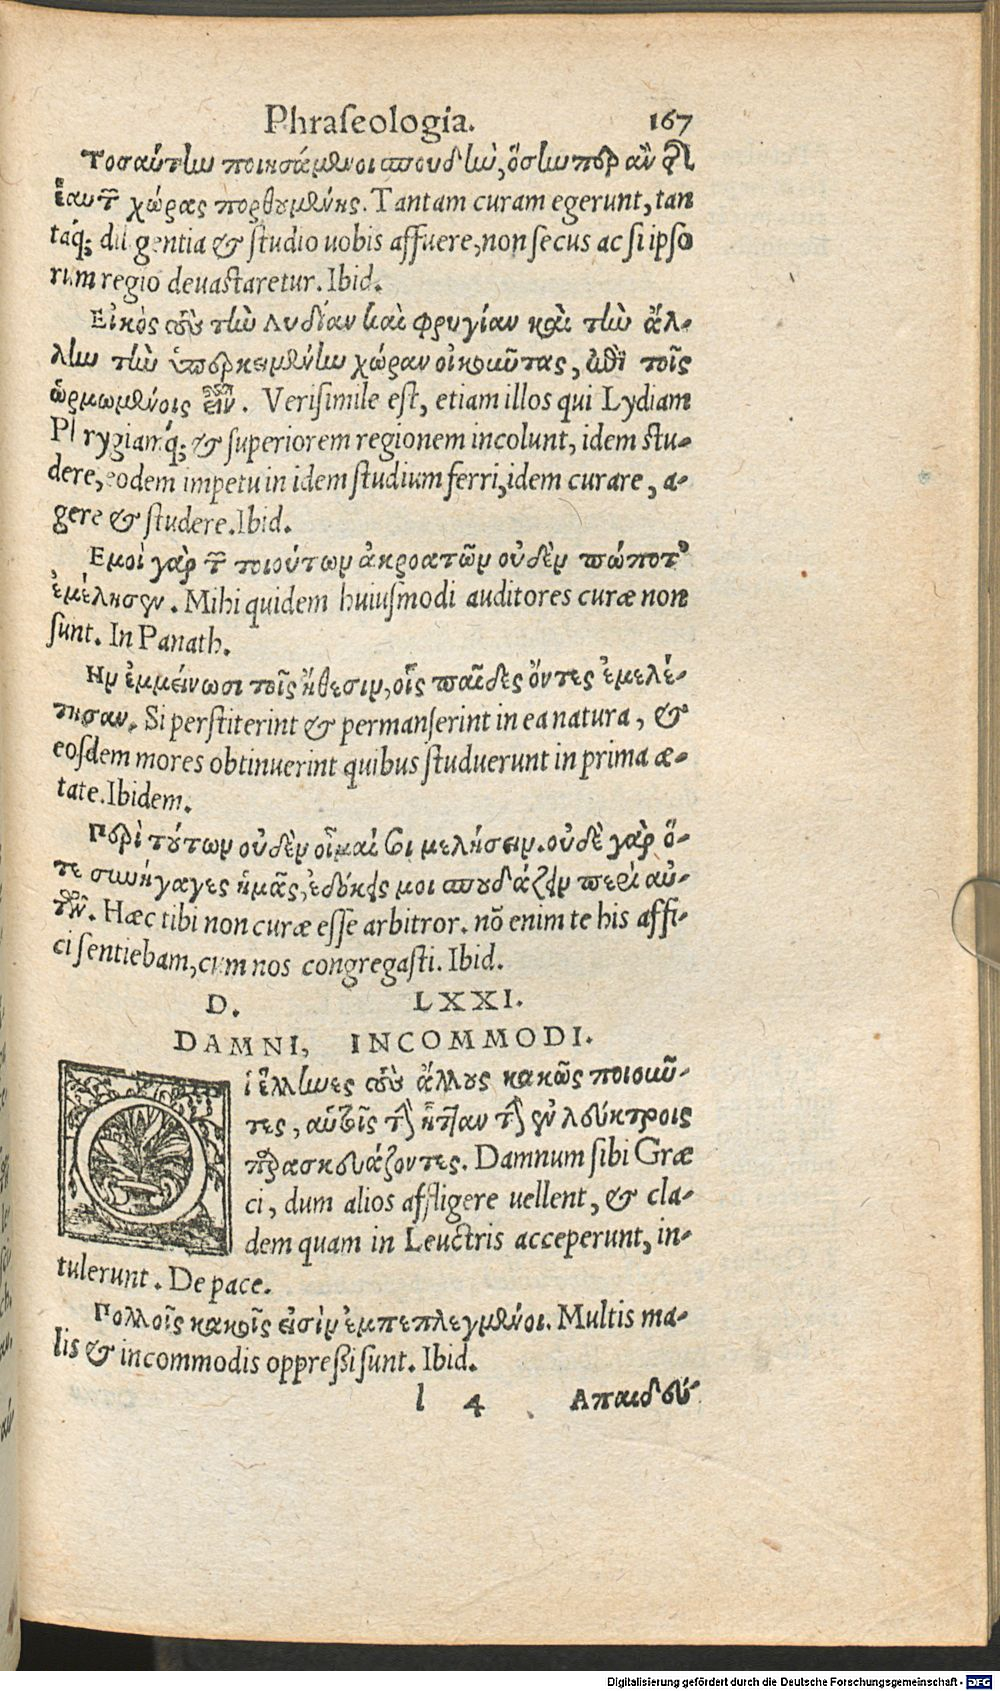 Phraſeologia. 167
Τοσαύτην ποιησάμενοι σπουδὴν, ὅσην περ ἂν
ἑαυτῶν χώρας πορθουμένης. Tantam curam egerunt, tan
táq; diligentia & ſtudio uobis affuere, non ſecus ac ſi ipſo
rum regio deuaſtaretur. Ibid.
Εἰκὸς οὖν τὴν Λυδίαν καὶ Φρυγίαν καὶ τὴν ἄλ-
λην τὴν ὑπερκειμένην χώραν οἰκοῦντας, ἐπὶ τοῖς
ὡρμωμένοις εἶναι. Veriſimile eſt, etiam illos qui Lydiam
Phrygiamq́; & ſuperiorem regionem incolunt, idem ſtu-
dere, eodem impetu in idem ſtudium ferri, idem curare, a-
gere & ſtudere. Ibid.
Εμοὶ γὰρ τῶν ποιούτων ἀκροατῶν οὐδὲν πώποτ’
ἐμέλησεν. Mihi quidem huiuſmodi auditores curæ non
ſunt. In Panath.
Ην ἐμμείνωσι τοῖς ἤθεσιν, οἷς παῖδες ὄντες ἐμελέ-
τησαν. Si perſtiterint & permanſerint in ea natura, &
eoſdem mores obtinuerint quibus ſtuduerunt in prima æ-
tate. Ibidem.
Περὶ τούτων οὐδὲν οἶμαί σοι μελήσειν. οὐδὲ γὰρ ὅ-
τε συνήγαγες ἡμᾶς, ἐδόκεις μοι σπουδάζειν περὶ αὐ-
τῶν. Hæc tibi non curæ eſſe arbitror. nō enim te his affi-
ci ſentiebam, cum nos congregaſti. Ibid.
D. LXXI.
DAMNI, INCOMMODI.
Οἱ ἕλληνες οὖν ἄλλους κακῶς ποιοῦν-
τες, αὑτοῖς τὴν ἧτταν τὴν ἐν λεύκτροις
παρασκευάζοντες. Damnum ſibi Græ
ci, dum alios affligere uellent, & cla-
dem quam in Leuctris acceperunt, in-
tulerunt. De pace.
Πολλοῖς κακοῖς εἰσὶν ἐμπεπλεγμένοι. Multis ma-
lis & incommodis oppreßi ſunt. Ibid.
l 4 Απαιδευ-
Digitalisierung gefördert durch die Deutsche Forschungsgemeinschaft - DFG